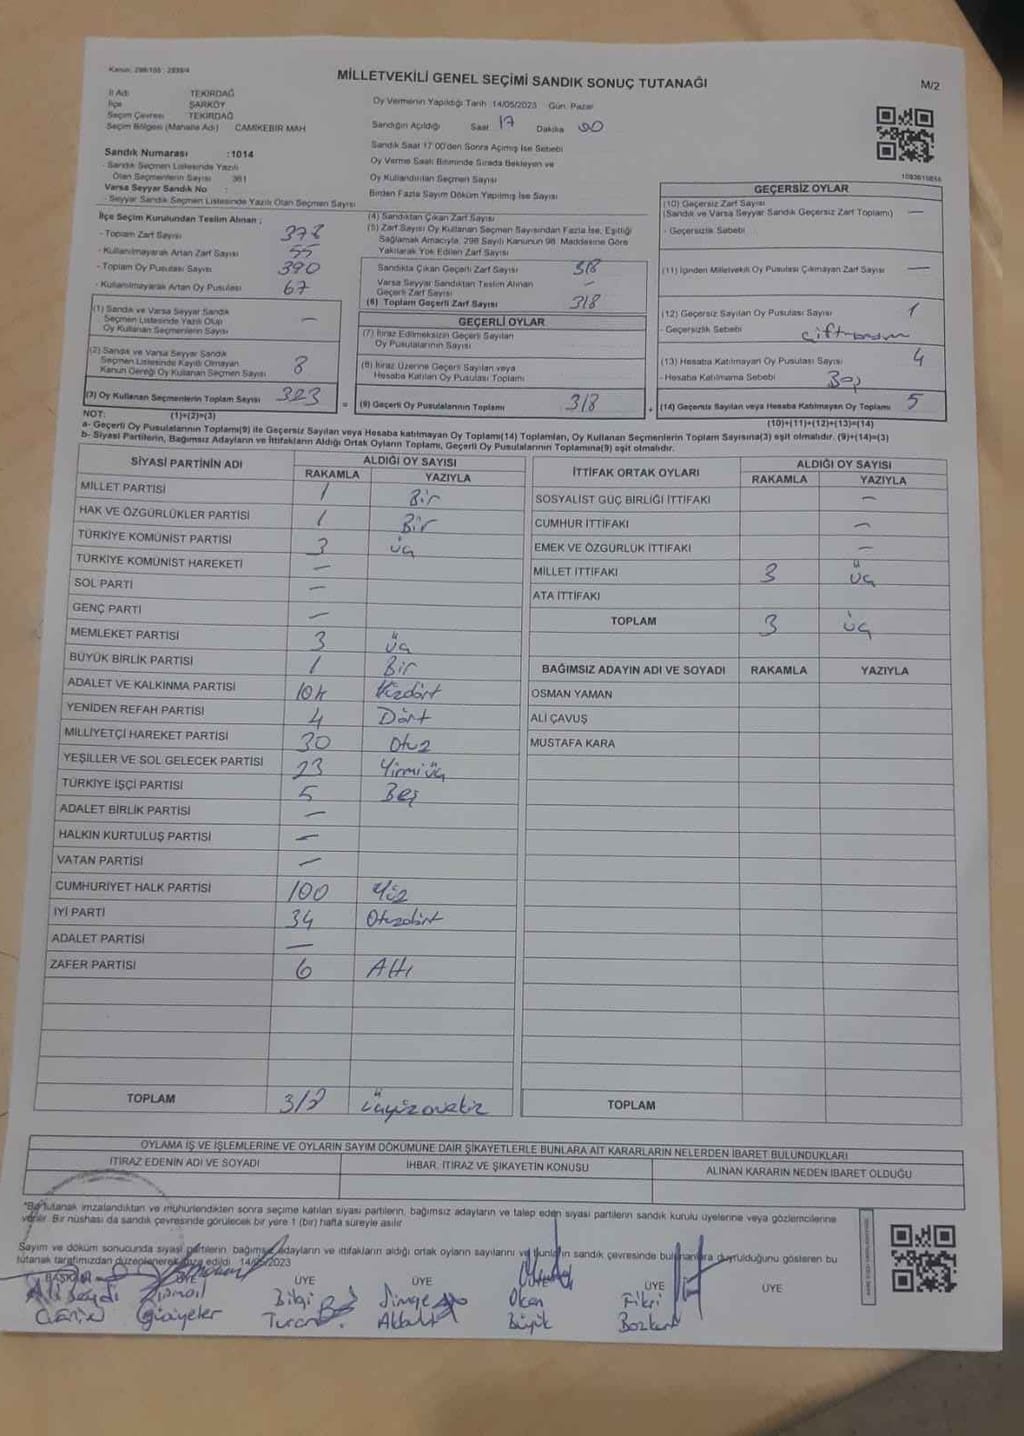 Kanun: 298/105 : 2839/4
MİLLETVEKİLİ GENEL SEÇİMİ SANDIK SONUÇ TUTANAĞI
M/2
İl Adı TEKİRDAĞ
İlçe ŞARKÖY
Seçim Çevresi TEKİRDAĞ
Seçim Bölgesi (Mahalle Adı) CAMİKEBİR MAH
Oy Vermenin Yapıldığı Tarih :14/05/2023 Gün: Pazar
Sandığın Açıldığı Saat 17 Dakika 00
Sandık Saat 17:00'den Sonra Açılmış İse Sebebi
Oy Verme Saati Bitiminde Sırada Bekleyen ve
Oy Kullandırılan Seçmen Sayısı
Birden Fazla Sayım Döküm Yapılmış İse Sayısı
Sandık Numarası :1014
- Sandık Seçmen Listesinde Yazılı
Olan Seçmenlerin Sayısı 361
Varsa Seyyar Sandık No :
- Seyyar Sandık Seçmen Listesinde Yazılı Olan Seçmen Sayısı
İlçe Seçim Kurulundan Teslim Alınan ;
- Toplam Zarf Sayısı 378
- Kullanılmayarak Artan Zarf Sayısı 55
- Toplam Oy Pusulası Sayısı 390
- Kullanılmayarak Artan Oy Pusulası 67
(1) Sandık ve Varsa Seyyar Sandık
Seçmen Listesinde Yazılı Olup
Oy Kullanan Seçmenlerin Sayısı —
(2) Sandık ve Varsa Seyyar Sandık
Seçmen Listesinde Kayıtlı Olmayan
Kanun Gereği Oy Kullanan Seçmen Sayısı 8
(3) Oy Kullanan Seçmenlerin Toplam Sayısı 323
(1)+(2)=(3)
(4) Sandıktan Çıkan Zarf Sayısı
(5) Zarf Sayısı Oy Kullanan Seçmen Sayısından Fazla İse, Eşitliği
Sağlamak Amacıyla, 298 Sayılı Kanunun 98. Maddesine Göre
Yakılarak Yok Edilen Zarf Sayısı
Sandıkta Çıkan Geçerli Zarf Sayısı 318
Varsa Seyyar Sandıktan Teslim Alınan
Geçerli Zarf Sayısı —
(6) Toplam Geçerli Zarf Sayısı 318
GEÇERLİ OYLAR
(7) İtiraz Edilmeksizin Geçerli Sayılan
Oy Pusulalarının Sayısı
(8) İtiraz Üzerine Geçerli Sayılan veya
Hesaba Katılan Oy Pusulası Toplamı
= (9) Geçerli Oy Pusulalarının Toplamı 318
GEÇERSİZ OYLAR
(10) Geçersiz Zarf Sayısı
(Sandık ve Varsa Seyyar Sandık Geçersiz Zarf Toplamı) —
- Geçersizlik Sebebi
(11) İçinden Milletvekili Oy Pusulası Çıkmayan Zarf Sayısı —
(12) Geçersiz Sayılan Oy Pusulası Sayısı 1
- Geçersizlik Sebebi
(13) Hesaba Katılmayan Oy Pusulası Sayısı 4
- Hesaba Katılmama Sebebi Boş
+ (14) Geçersiz Sayılan veya Hesaba Katılmayan Oy Toplamı 5
(10)+(11)+(12)+(13)=(14)
NOT:
a- Geçerli Oy Pusulalarının Toplamı(9) ile Geçersiz Sayılan veya Hesaba katılmayan Oy Toplamı(14) Toplamları, Oy Kullanan Seçmenlerin Toplam Sayısına(3) eşit olmalıdır. (9)+(14)=(3)
b- Siyasi Partilerin, Bağımsız Adayların ve İttifakların Aldığı Ortak Oyların Toplamı, Geçerli Oy Pusulalarının Toplamına(9) eşit olmalıdır.
SİYASİ PARTİNİN ADI ALDIĞI OY SAYISI
RAKAMLA YAZIYLA
MİLLET PARTİSİ 1 Bir
HAK VE ÖZGÜRLÜKLER PARTİSİ 1 Bir
TÜRKİYE KOMÜNİST PARTİSİ 3 üç
TÜRKİYE KOMÜNİST HAREKETİ —
SOL PARTİ —
GENÇ PARTİ —
MEMLEKET PARTİSİ 3 üç
BÜYÜK BİRLİK PARTİSİ 1 Bir
ADALET VE KALKINMA PARTİSİ 104 Yüzdört
YENİDEN REFAH PARTİSİ 4 Dört
MİLLİYETÇİ HAREKET PARTİSİ 30 Otuz
YEŞİLLER VE SOL GELECEK PARTİSİ 23 Yirmiüç
TÜRKİYE İŞÇİ PARTİSİ 5 Beş
ADALET BİRLİK PARTİSİ —
HALKIN KURTULUŞ PARTİSİ —
VATAN PARTİSİ —
CUMHURİYET HALK PARTİSİ 100 Yüz
İYİ PARTİ 34 Otuzdört
ADALET PARTİSİ —
ZAFER PARTİSİ 6 Altı
TOPLAM 318 üçyüzonsekiz
İTTİFAK ORTAK OYLARI ALDIĞI OY SAYISI
RAKAMLA YAZIYLA
SOSYALİST GÜÇ BİRLİĞİ İTTİFAKI —
CUMHUR İTTİFAKI —
EMEK VE ÖZGÜRLÜK İTTİFAKI —
MİLLET İTTİFAKI 3 üç
ATA İTTİFAKI
TOPLAM 3 üç
BAĞIMSIZ ADAYIN ADI VE SOYADI RAKAMLA YAZIYLA
OSMAN YAMAN
ALİ ÇAVUŞ
MUSTAFA KARA
TOPLAM
OYLAMA İŞ VE İŞLEMLERİNE VE OYLARIN SAYIM DÖKÜMÜNE DAİR ŞİKAYETLERLE BUNLARA AİT KARARLARIN NELERDEN İBARET BULUNDUKLARI
İTİRAZ EDENİN ADI VE SOYADI İHBAR, İTİRAZ VE ŞİKAYETİN KONUSU ALINAN KARARIN NEDEN İBARET OLDUĞU
*Bu tutanak imzalandıktan ve mühürlendikten sonra seçime katılan siyasi partilerin, bağımsız adayların ve talep eden siyasi partilerin sandık kurulu üyelerine veya gözlemcilerine
verilir. Bir nüshası da sandık çevresinde görülecek bir yere 1 (bir) hafta süreyle asılır.
Sayım ve döküm sonucunda siyasi partilerin, bağımsız adayların ve ittifakların aldığı ortak oyların sayılarını ve bunların sandık çevresinde bulunanlara duyrulduğunu gösteren bu
tutanak tarafımızdan düzenlenerek imza edildi. 14/05/2023
BAŞKAN ÜYE ÜYE ÜYE ÜYE ÜYE ÜYE
Ali Seydi Bilgi Simge Okan Fikri
Turan Büyük Bozkurt